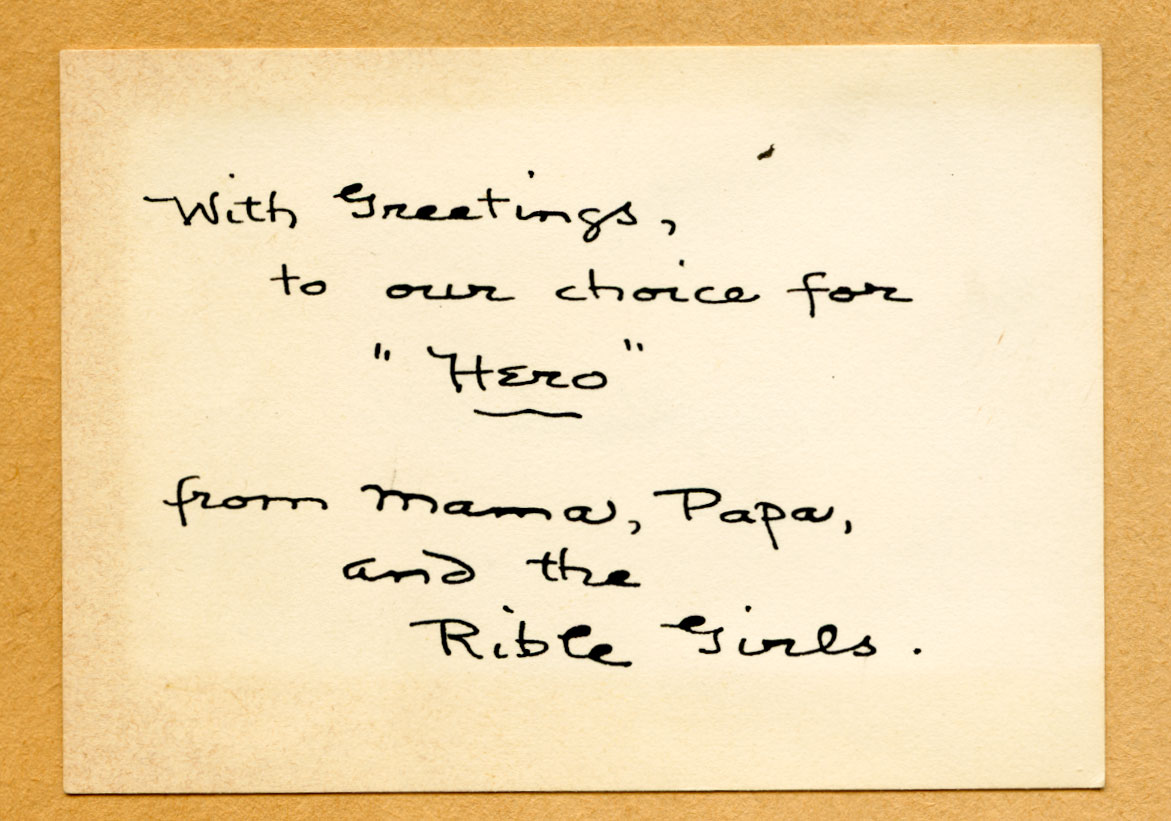 With Greetings,
to our choice for
"Hero"
from Mama, Papa,
and the
Rible Girls.